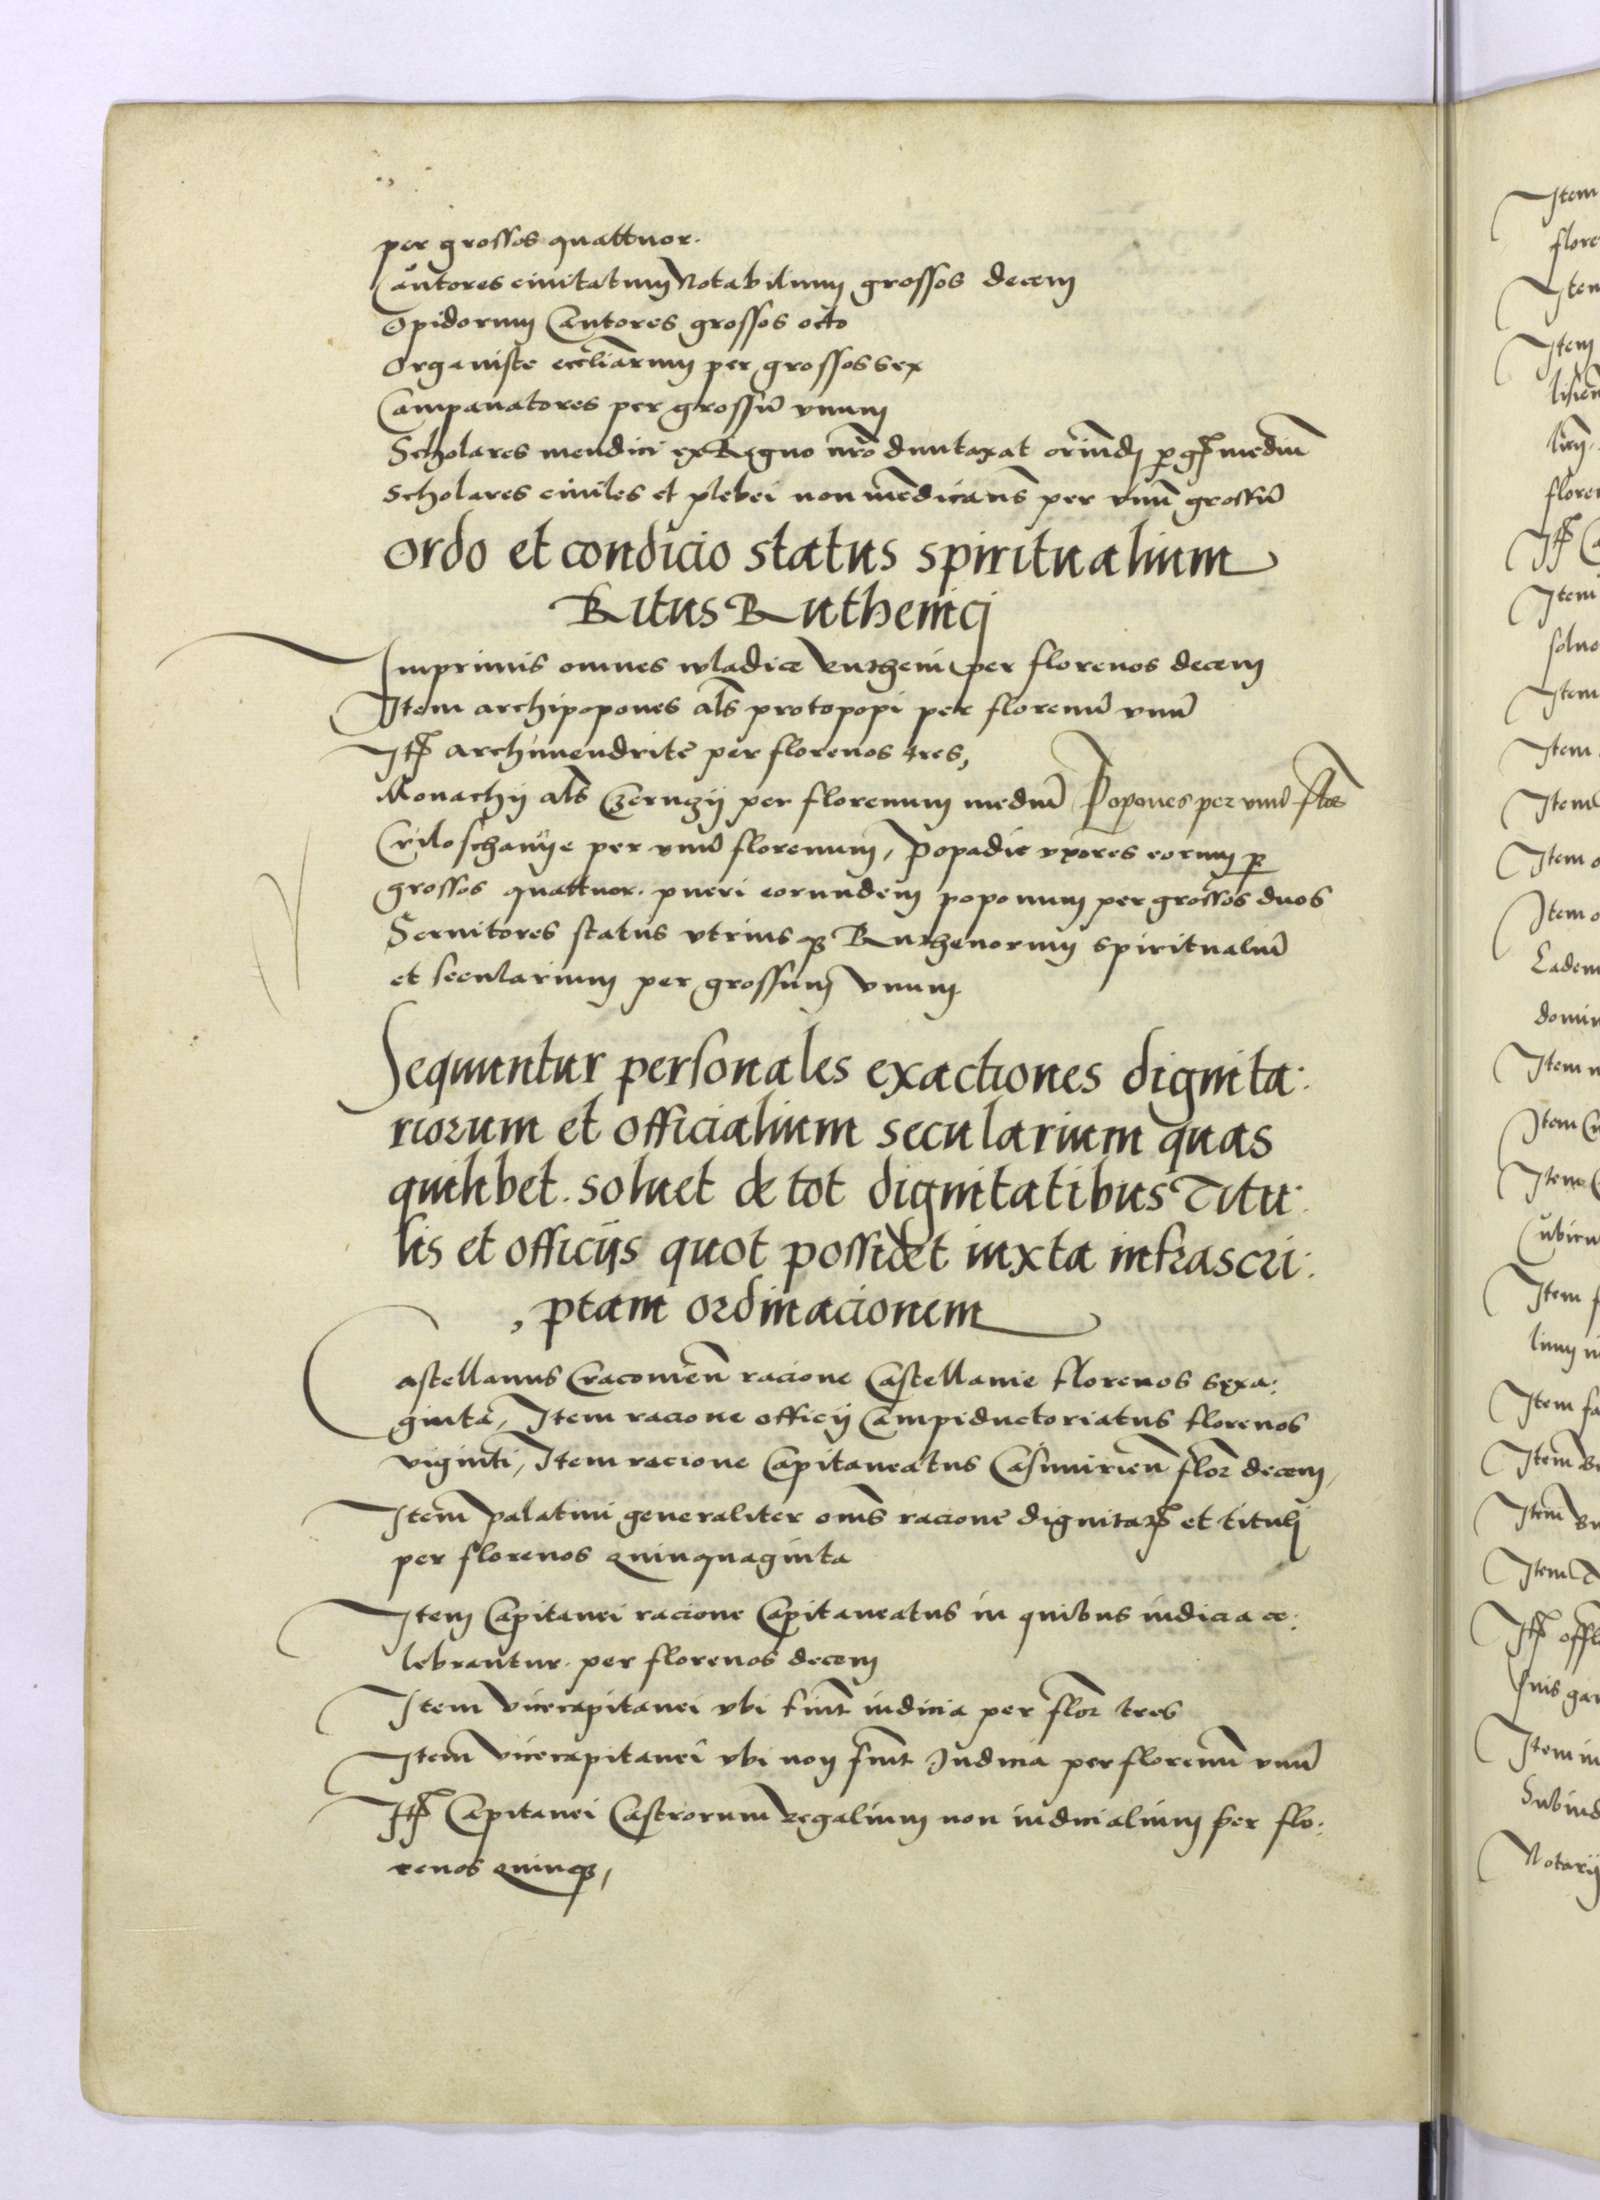 per grossos quattuor.
Cantores civitatum Notabilium grossos decem
Opidorum Cantores grossos octo
Organiste eccliarum per grossos sex
Campanatores per grossū unum
Scholares mendici ex Regno nr̄o duntaxat oriundj per gs̄ mediū
Scholares civiles et plebei non mendicans per unū grossū
Ordo et condicio status spiritualium
Ritus Ruthenicj
Imprimis omnes wladice Rutheni per florenos decem
Item archipopones als protopopi per florenū unū
Itm̄ archimendrite per florenos tres,
Monachij als Czernczij per florenum mediū Popones per unū flor
Criloschanije per unū florenum, popadie uxores eorum per
grossos quattuor. pueri eorundem poponum per grossos duos
Servitores status utriusqꝫ Ruthenorum spiritualiū
et secularium per grossum unum
Sequuntur personales exactiones dignita:
riorum et officialium secularium quas
quilibet. soluet de tot dignitatibus Titu:
lis et officijs quot possidet iuxta infrascri:
ptam ordinacionem
Castellanus Cracovien̄ racione Castellanie florenos sexa:
ginta, Item racione officij Campiductoriatus florenos
viginti, Item racione Capitaneatus Casimirien̄ flor decem,
Item palatini generaliter om̄s racione dignitatꝫ et titulj
per florenos quinquaginta
Item Capitanei racione Capitaneatus in quibus iudicia ce:
lebrantur. per florenos decem
Item vicecapitanei ubi sunt iudicia per flor tres
Item vicecapitanei ubi non sunt Judicia per florenū unū
Itm̄ Capitanei Castrorum regalium non iudicialium per flo:
renos quinqꝫ,
Item
flore
Item
Item
Item
solvo
Item
Item
Item
Item
Item
Eadem
domin
Item
Item
Item
Item
Item
Item
Item
Item
Item
Item
Notarij